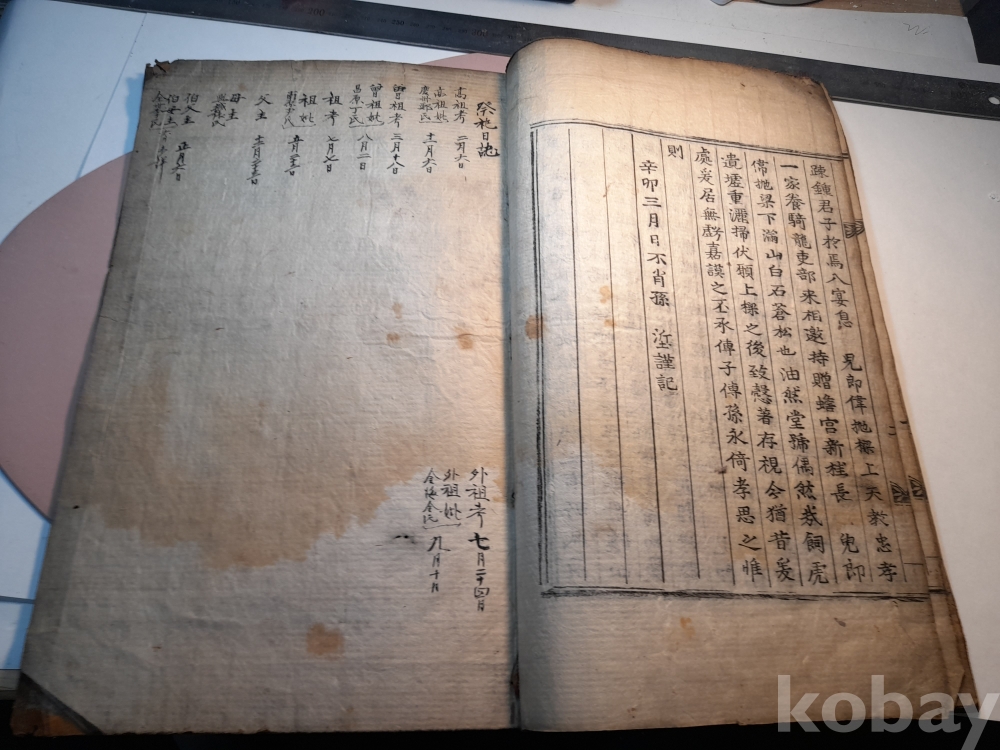 疎鍾君子於焉入宴息 兒郎偉抛樑上天教忠孝
一家養騎龍吏部來相邀持贈蟾宮新桂長 兒郎
偉抛梁下瀛山白石蒼松也油然堂號偶然哉飼虎
遺墟重灑掃伏願上樑之後致慤著存視今猶昔爰
處爰居無虧嘉謨之丕承傳子傳孫永倚孝思之惟
則
辛卯三月日不肖孫 謹記
祭祀日誌
高祖考 二月六日
高祖妣 慶州鄭氏 十一月六日
曾祖考 三月十八日
曾祖妣 昌原丁氏 八月二日
祖考 七月七日
祖妣
父主
母主
伯父主 正月六日
伯母主
外祖考 七月二十四日
外祖妣 金海金氏 九月十日
kobay